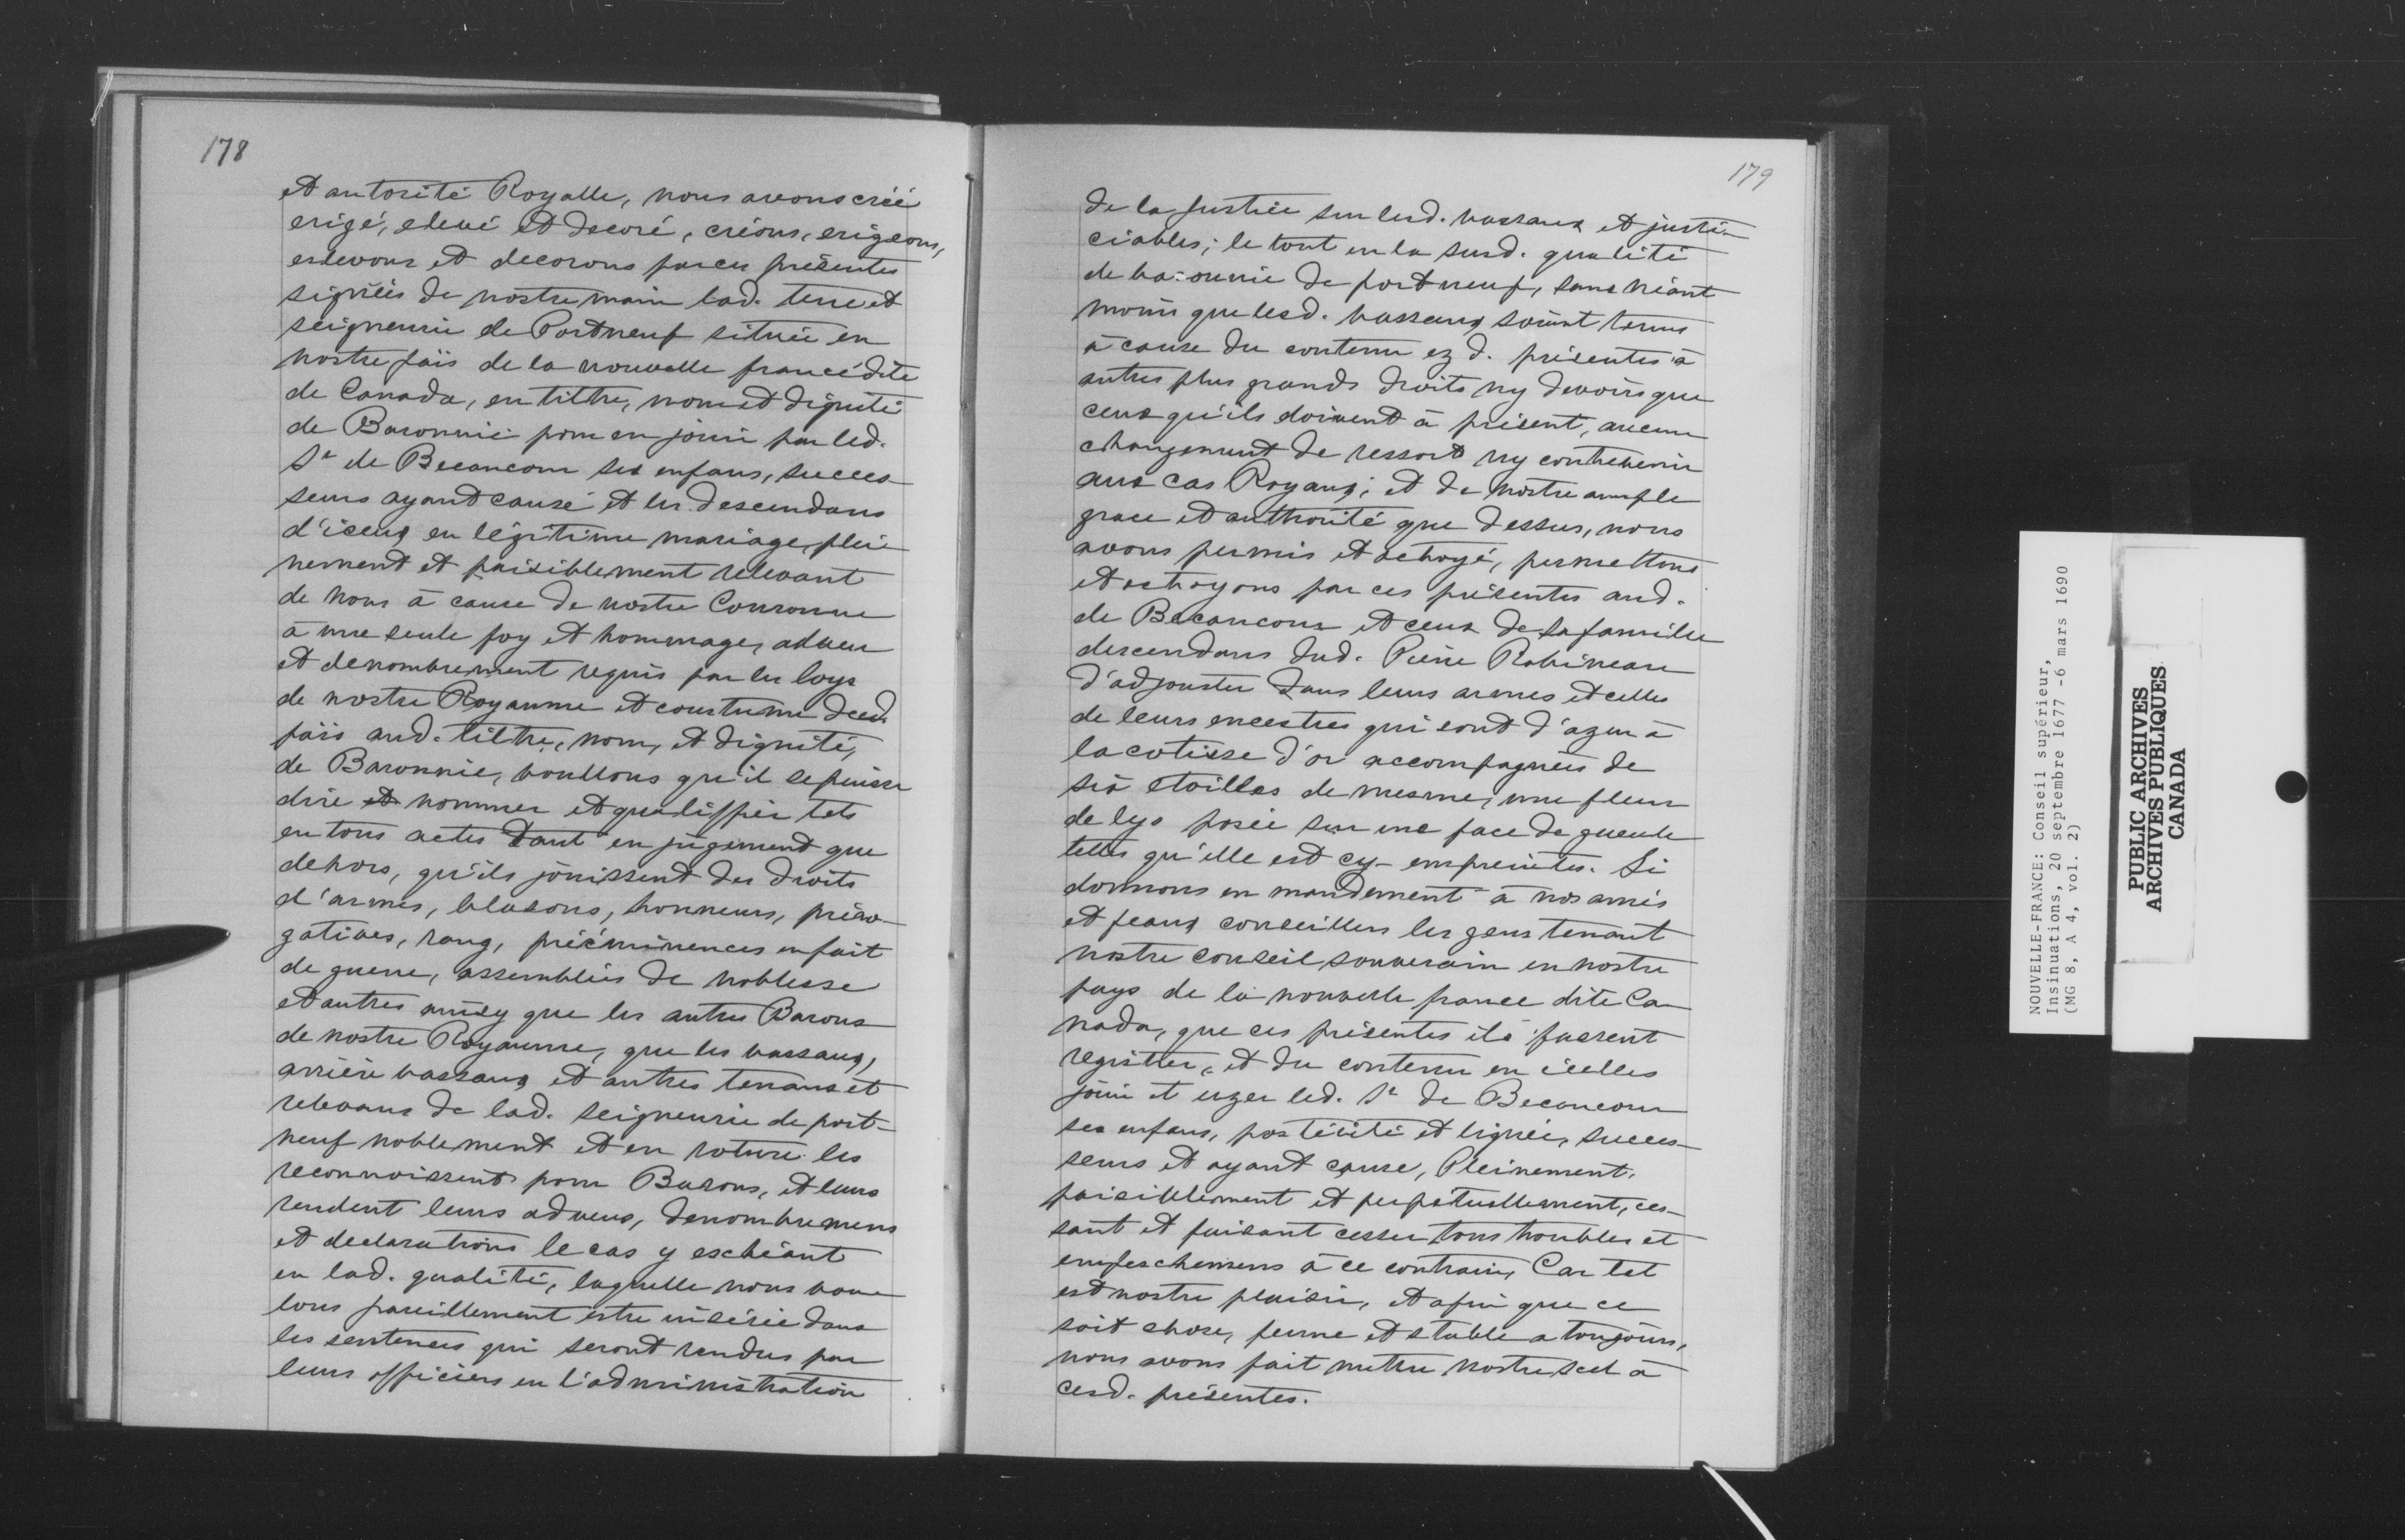 178
et autorité Royalle, nous avons créé
erigé, elevé et decoré, créons, erigeons,
eslevons et decorons par ces présentes
signées de nostre main lad. terre et
seigneurie de Portneuf située en
nostre païs de la nouvelle france dite
de Canada, en tiltre, nom et dignité
de Baronnie pour en jouir par led.
Sr de Becancour ses enfans, succes
seurs ayant cause et les descendans
d'iceux en légitime mariage, plei
nement et paisiblement relevant
de nous à cause de nostre Couronne
à une seule foy et hommage, adveu
et denombrement requis par les loys
de nostre Royaume et coustume dud.
païs aud. tiltre, nom, et dignité,
de Baronnie, voullons qu'il se puisse
dire et nommer et qualiffier tels
en tous actes tant en jugement que
dehors, qu'ils jouissent des droits
d'armes, blasons, honneurs, préro-
gatives, rang, prééminences en fait
de guerre, assemblées de noblesse
et autres ainsy que les autres Barons
de nostre Royaume, que les vassaux,
arrière vassaux et autres tenans et
relevans de lad. seigneurie de port-
neuf noblement et en roture les
reconnoissent pour Barons, et leurs
rendent leurs adveus, denombremens
et declarations le cas y eschéant
en lad. qualité, laquelle nous vou
lons pareillement estre insérée dans
les sentences qui seront rendus par
leurs officiers en l'administration
179
de la Justice sur lesd. vassaux et justi-
ciables; le tout en la susd. qualité
de baronnie de portneuf, sans néant
moins que lesd. vassaux soient tenus
à cause du contenu ez d. présentes à
autres plus grands droits ny devoirs que
ceux qu'ils doivent à présent, aucun
changement de ressort ny contrevenir
aux cas Royaux; et de nostre ample
grace et authorité que dessus, nous
avons permis et octroyé, permettons
et octroyons par ces présentes aud.
de Becancour et ceux de sa famille
descendans dud. Pierre Robineau
d'adjouster dans leurs armes et celles
de leurs encestres qui sont d'azur à
la cotisse d'or accompagnées de
six étoilles de mesme, une fleur
de lys posée sur une face de gueule
telles qu'elle est cy-empreintes. Si
donnons en mandement à nos amis
et feaux conseillers les gens tenant
nostre conseil souverain en nostre
pays de la nouvelle france dite Ca
nada, que ces présentes ils fassent
registter, et du contenu en icelles
jouir et uzer led. Sr de Becancour
ses enfans, postérité et lignée, succes-
seurs et ayant cause, Pleinement,
paisiblement et perpétuellement, ces-
sant et faisant cesser tous troubles et
empeschemens à ce contraire, Car tel
est nostre plaisir, et afin que ce
soit chose, ferme et stable a toujours,
nous avons fait mettre nostre scel à
cesd. présentes.
NOUVELLE-FRANCE: Conseil supérieur,
Insinuations, 20 septembre 1677 -6 mars 1690
(MG 8, A 4, vol. 2)
PUBLIC ARCHIVES
ARCHIVES PUBLIQUES
CANADA